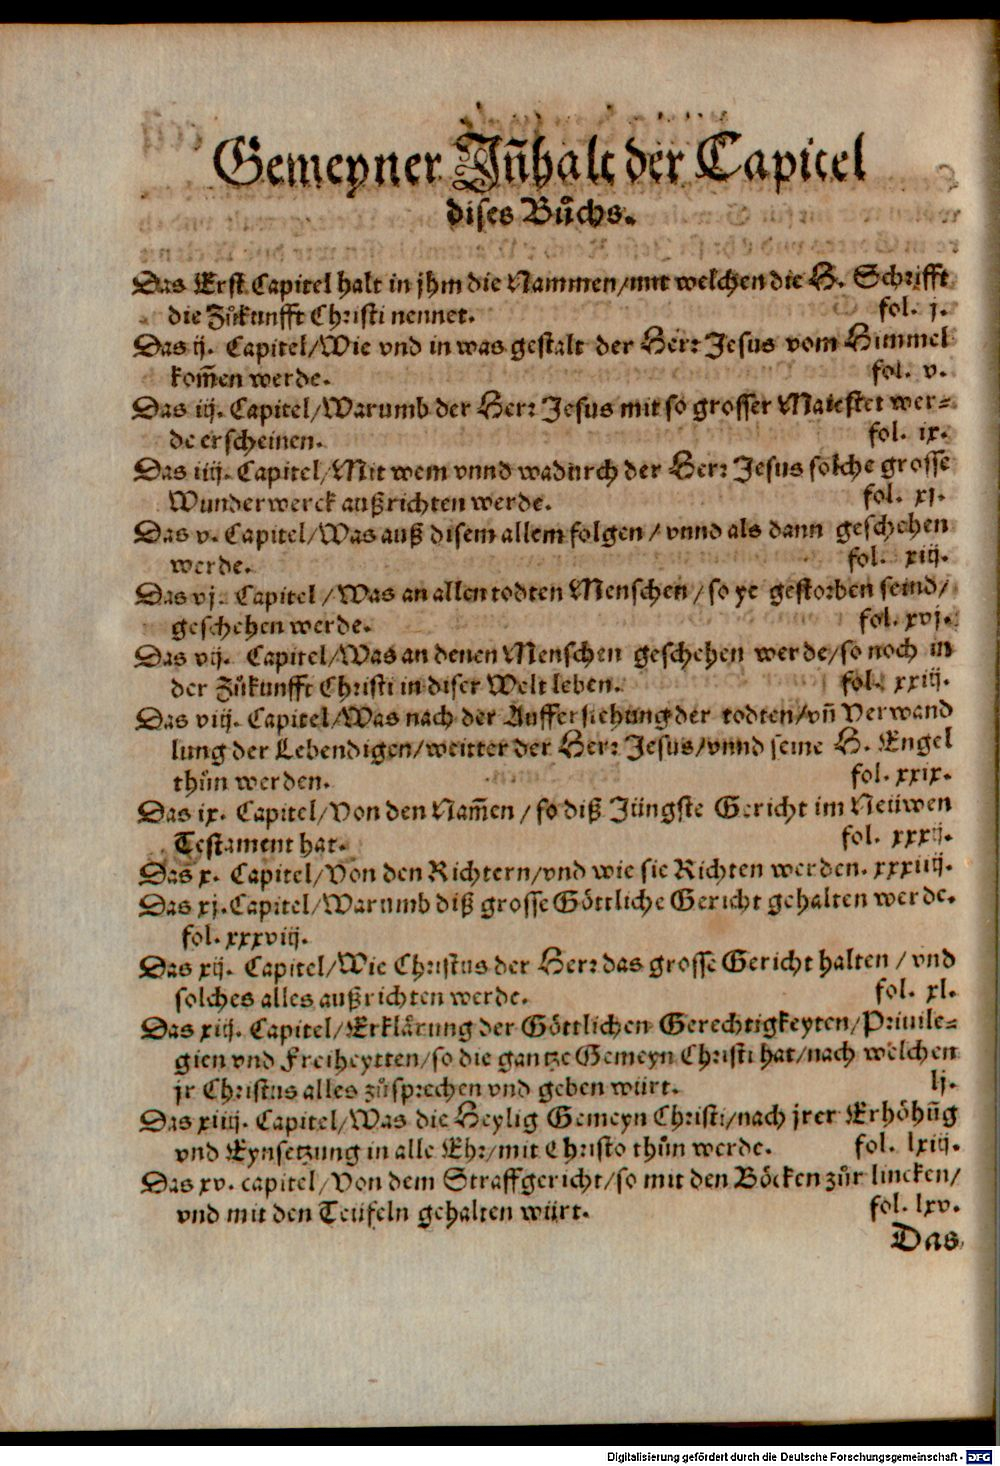 Gemeyner Iñhalt der Capitel
dises Bůchs.
Das Erst Capitel halt in jhm die Nammen/mit welchen die H. Schrifft
die Zůkunfft Christi nennet. fol. j.
Das ij. Capitel/Wie vnd in was gestalt der Herr Jesus vom Himmel
kom̃en werde. fol. v.
Das iij. Capitel/Warumb der Herr Jesus mit so grosser Maiestet wer-
de erscheinen. fol. ix.
Das iiij. Capitel/Mit wem vnnd wadurch der Herr Jesus solche grosse
Wunderwerck außrichten werde. fol. xj.
Das v. Capitel/Was auß disem allem folgen/vnnd als dann geschehen
werde. fol. xiij.
Das vj. Capitel/Was an allen todten Menschen/so ye gestorben seind/
geschehen werde. fol. xvj.
Das vij. Capitel/Was an denen Menschen geschehen werde/so noch in
der Zůkunfft Christi in diser Welt leben. fol. xxiij.
Das viij. Capitel/Was nach der Aufferstehung der todten/vñ Verwand
lung der Lebendigen/weitter der Herr Jesus/vnnd seine H. Engel
thůn werden. fol. xxix.
Das ix. Capitel/Von den Nam̃en/so diß Jüngste Gericht im Neüwen
Testament hat. fol. xxxij.
Das x. Capitel/Von den Richtern/vnd wie sie Richten werden. xxxiiij.
Das xj. Capitel/Warumb diß grosse Göttliche Gericht gehalten werde.
fol. xxxviij.
Das xij. Capitel/Wie Christus der Herr das grosse Gericht halten/vnd
solches alles außrichten werde. fol. xl.
Das xiij. Capitel/Erklärung der Göttlichen Gerechtigkeyten/Priuile-
gien vnd Freiheytten/so die gantze Gemeyn Christi hat/nach welchen
jr Christus alles zůsprechen vnd geben würt. lj.
Das xiiij. Capitel/Was die Heylig Gemeyn Christi/nach jrer Erhöhũg
vnd Eynsetzung in alle Ehr/mit Christo thůn werde. fol. lxiij.
Das xv. capitel/Von dem Straffgericht/so mit den Böcken zůr lincken/
vnd mit den Teüfeln gehalten würt. fol. lxv.
Das
Digitalisierung gefördert durch die Deutsche Forschungsgemeinschaft - DFG